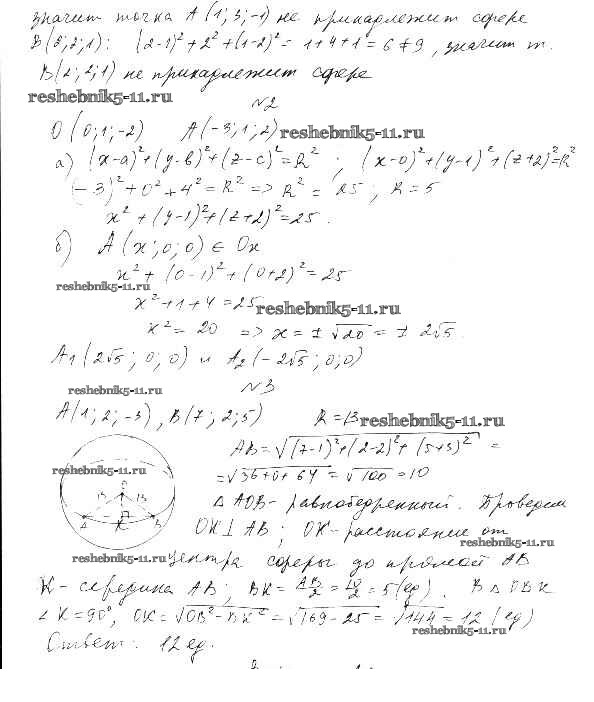 значит точка A(1; 3; -1) не принадлежит сфере
B(2; 2; 1): (2-1)²+2²+(1-2)²= 1+4+1=6≠9, значит т.
B(2; 2; 1) не принадлежит сфере
reshebnik5-11.ru
№2
O(0; 1; -2) A(-3; 1; 2) reshebnik5-11.ru
а) (x-a)²+(y-b)²+(z-c)²=R² ; (x-0)²+(y-1)²+(z+2)²=R²
(-3)²+0²+4²=R² => R²= 25; R=5
x²+(y-1)²+(z+2)²=25.
б) A(x; 0; 0) ∈ Ox
x²+(0-1)²+(0+2)²=25
reshebnik5-11.ru
x²+1+4=25 reshebnik5-11.ru
x²= 20 => x=±√20 = ± 2√5.
A₁(2√5; 0; 0) и A₂(-2√5; 0; 0)
reshebnik5-11.ru
№3
A(1; 2; -3), B(7; 2; 5) R=13 reshebnik5-11.ru
AB=√(7-1)²+(2-2)²+(5+3)² =
=√36+0+64 = √100 =10
reshebnik5-11.ru
O
13 13
A K B
Δ AOB - равнобедренный. Проведем
OK⊥AB; OK-расстояние от
reshebnik5-11.ru
reshebnik5-11.ru
центра сферы до прямой AB
K- середина AB; BK= AB/2 = 10/2 = 5(ед). В Δ OBK
∠K=90°, OK=√OB²-BK² =√169-25 =√144 = 12(ед)
reshebnik5-11.ru
Ответ: 12 ед.